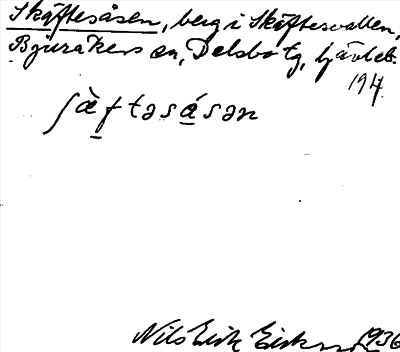 Skäftesåsen, berg i Skäftesvallen,
Bjuråkers sn, Delsbo tg, Gävleb.
194.
ʃæ̀ftəsásən
Nils Erik Eriksson 1936